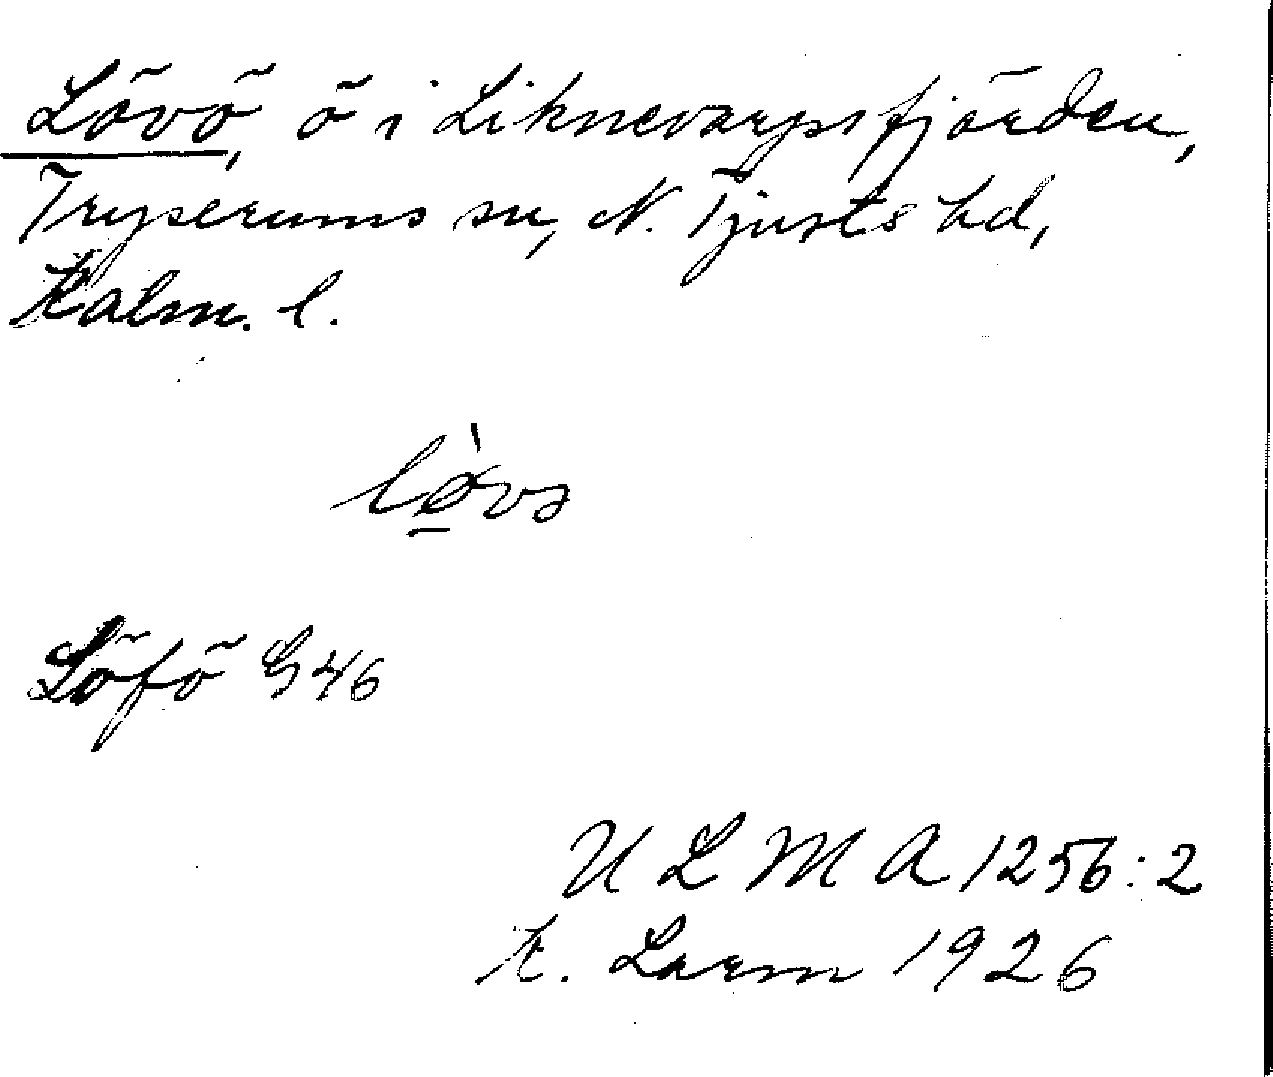 Lövö, ö i Liknevarpsfjärden,
Tryserums sn, N. Tjusts hd,
Kalm. l.
lø̲̀və
Löfö G46
ULMA 1256:2
K. Larm 1926